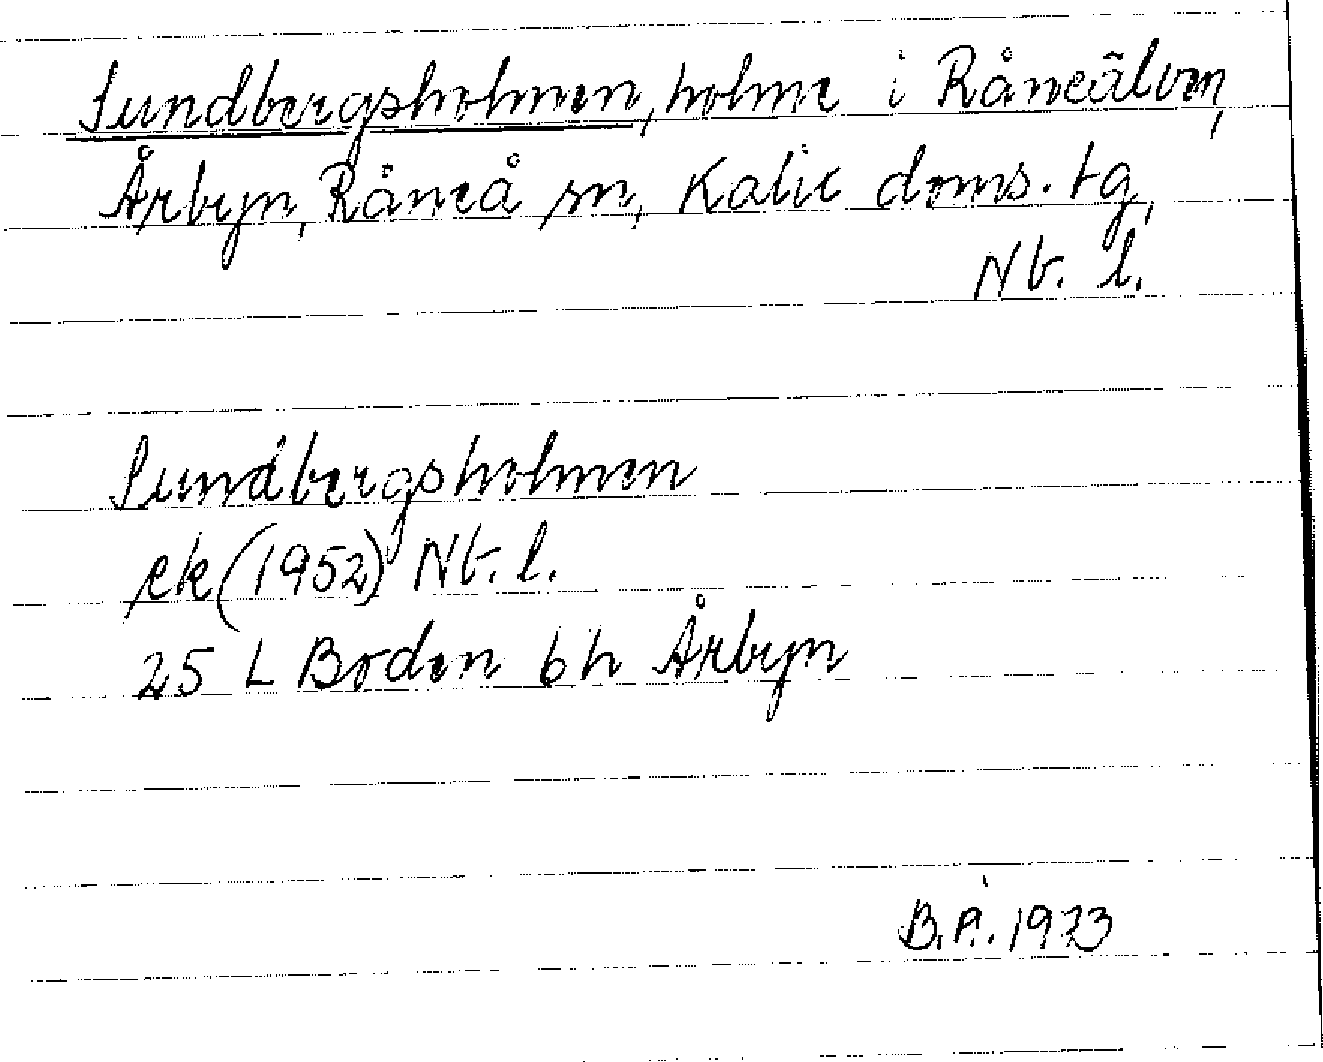 Sundbergsholmen, holme i Råneälven,
Årbyn, Råneå sn, Kalix doms. tg,
Nb. l.
Sundbergsholmen
ek (1952) Nb. l.
25 L Boden 6h Årbyn
B.P. 1973